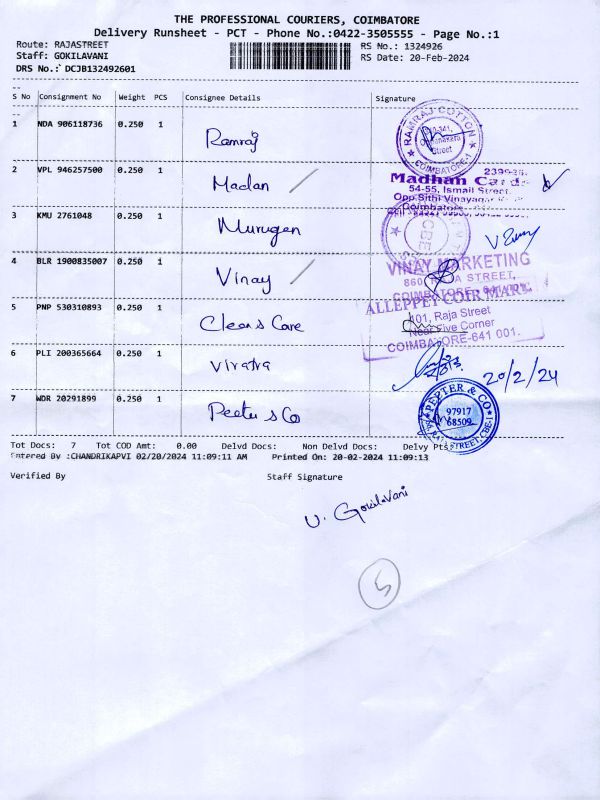 THE PROFESSIONAL COURIERS, COIMBATORE
Delivery Runsheet - PCT - Phone No.:0422-3505555 - Page No.:1
Route: RAJASTREET
RS No.: 1324926
Staff: GOKILAVANI
RS Date: 20-Feb-2024
DRS No.: DCJB132492601
S No Consignment No Weight PCS Consignee Details Signature
1 NDA 906118736 0.250 1 Ramraj
RAMRAJ COTTON
Street
COIMBATORE-1
2 VPL 946257500 0.250 1 Madan
Madhan Cards
54-55, Ismail Street
Opp Sithi Vinayagar
Coimbatore
3 KMU 2761048 0.250 1 Murugan
CBE
4 BLR 1900835007 0.250 1 Vinay
VINAY MARKETING
860 RAJA STREET,
COIMBATORE - 641 001
5 PNP 530310893 0.250 1 Clean & Care
ALLEPPEY COIR MART
101, Raja Street
Near Five Corner
COIMBATORE-641 001.
6 PLI 200365664 0.250 1 Viratra
20/2/24
7 WDR 20291899 0.250 1 Peeter & Co
PEETER & CO
97917
68509
RAJ STREET, CBE-1
Tot Docs: 7 Tot COD Amt: 0.00 Delvd Docs: Non Delvd Docs: Delvy Pts
Entered By :CHANDRIKAPVI 02/20/2024 11:09:11 AM Printed On: 20-02-2024 11:09:13
Verified By Staff Signature
U. Gokilavani
5